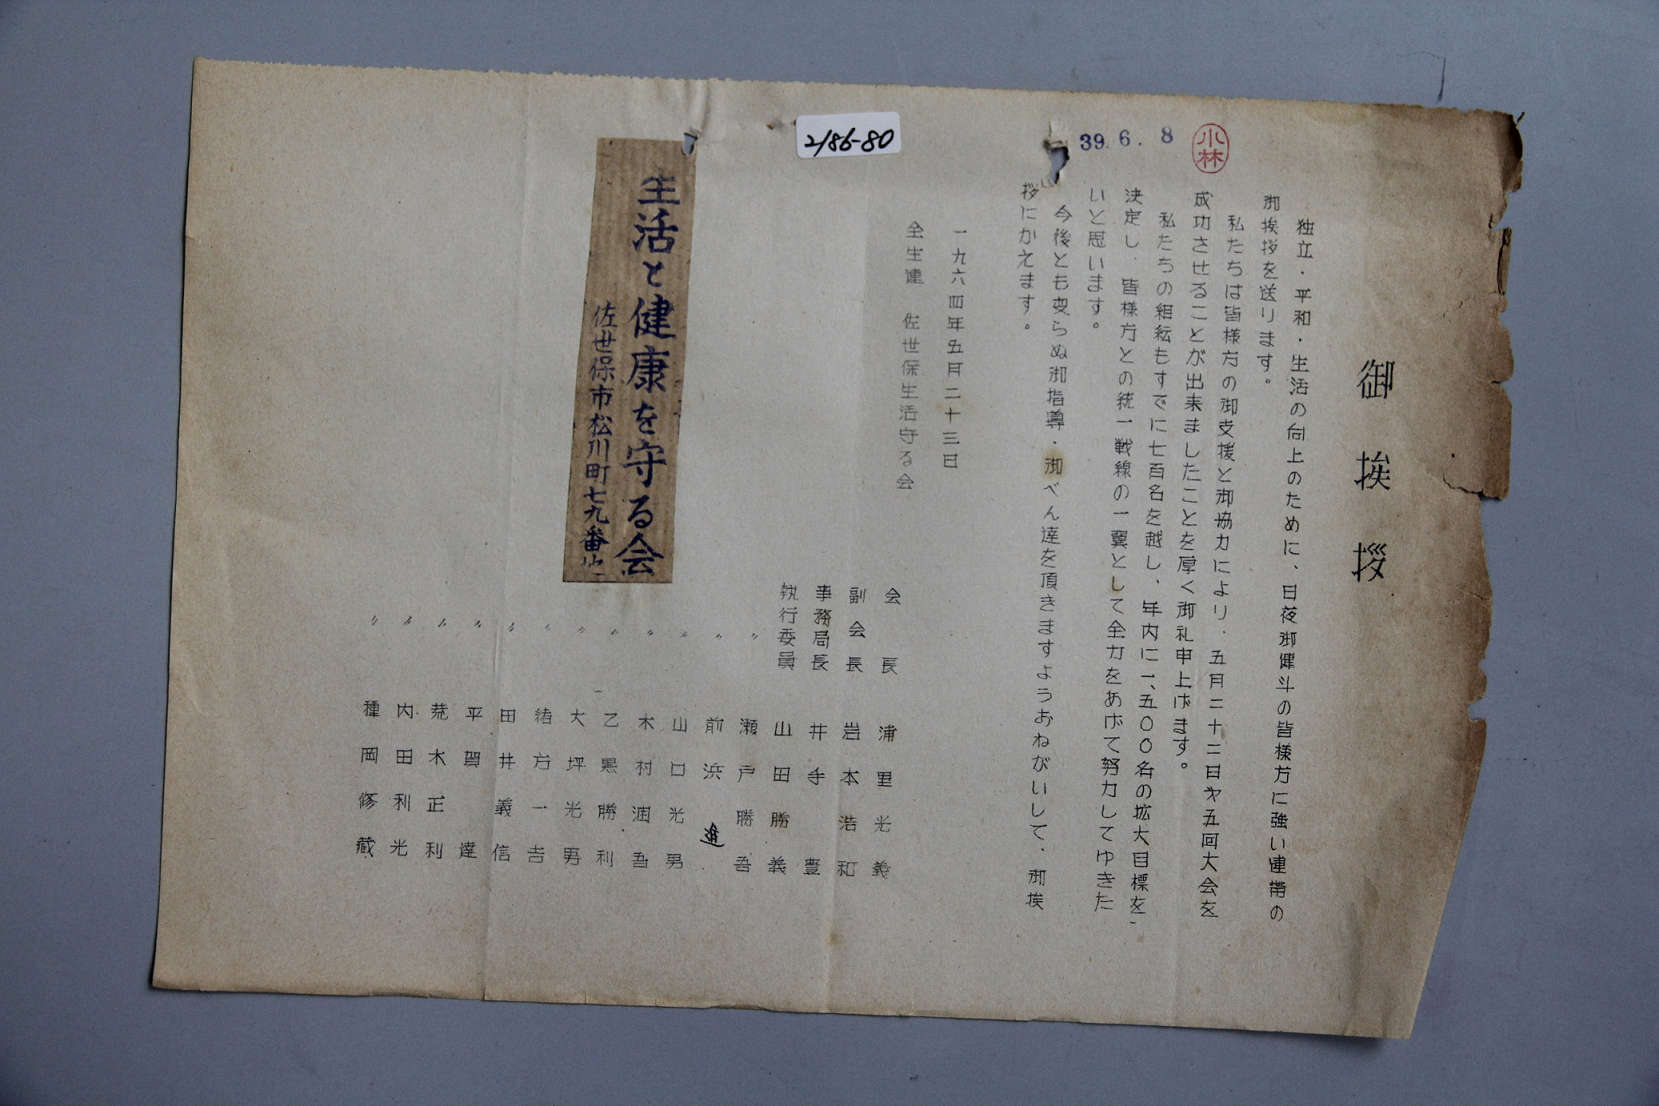 2186-80
39. 6. 8
小林
御挨拶
独立・平和・生活の向上のために、日夜御健斗の皆様方に強い連帯の
御挨拶を送ります。
私たちは皆様方の御支援と御協力により、五月二十二日才五回大会を
成功させることが出来ましたことを厚く御礼申上げます。
私たちの組織もすでに七百名を越し、年内に一、五〇〇名の拡大目標を
決定し、皆様方との統一戦線の一翼として全力をあげて努力してゆきた
いと思います。
今後とも変らぬ御指導・御べん達を頂きますようおねがいして、御挨
拶にかえます。
一九六四年五月二十三日
全生連 佐世保生活守る会
会長 浦里光義
副会長 岩本浩和
事務局長 井手豊
執行委員 山田勝義
〃 瀬戸勝吾
〃 前浜進
〃 山口光男
〃 木村潤吾
〃 乙黒勝利
〃 大坪光男
〃 緒方一吉
〃 田井義信
〃 平賀達
〃 荒木正利
〃 内田利光
〃 種岡修蔵
生活と健康を守る会
佐世保市松川町七九番地